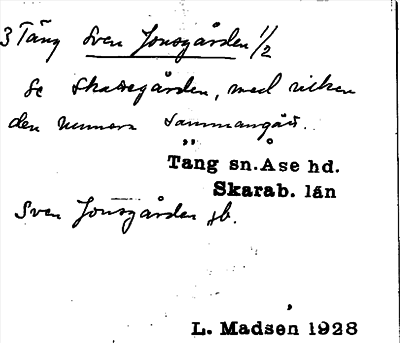 3 Täng Sven Jonsgården 1/2
se Skattegården, med vilken
den numera sammangått.
Täng sn. Åse hd.
Skarab. län
Sven Jonsgården jb.
L. Madsén 1928